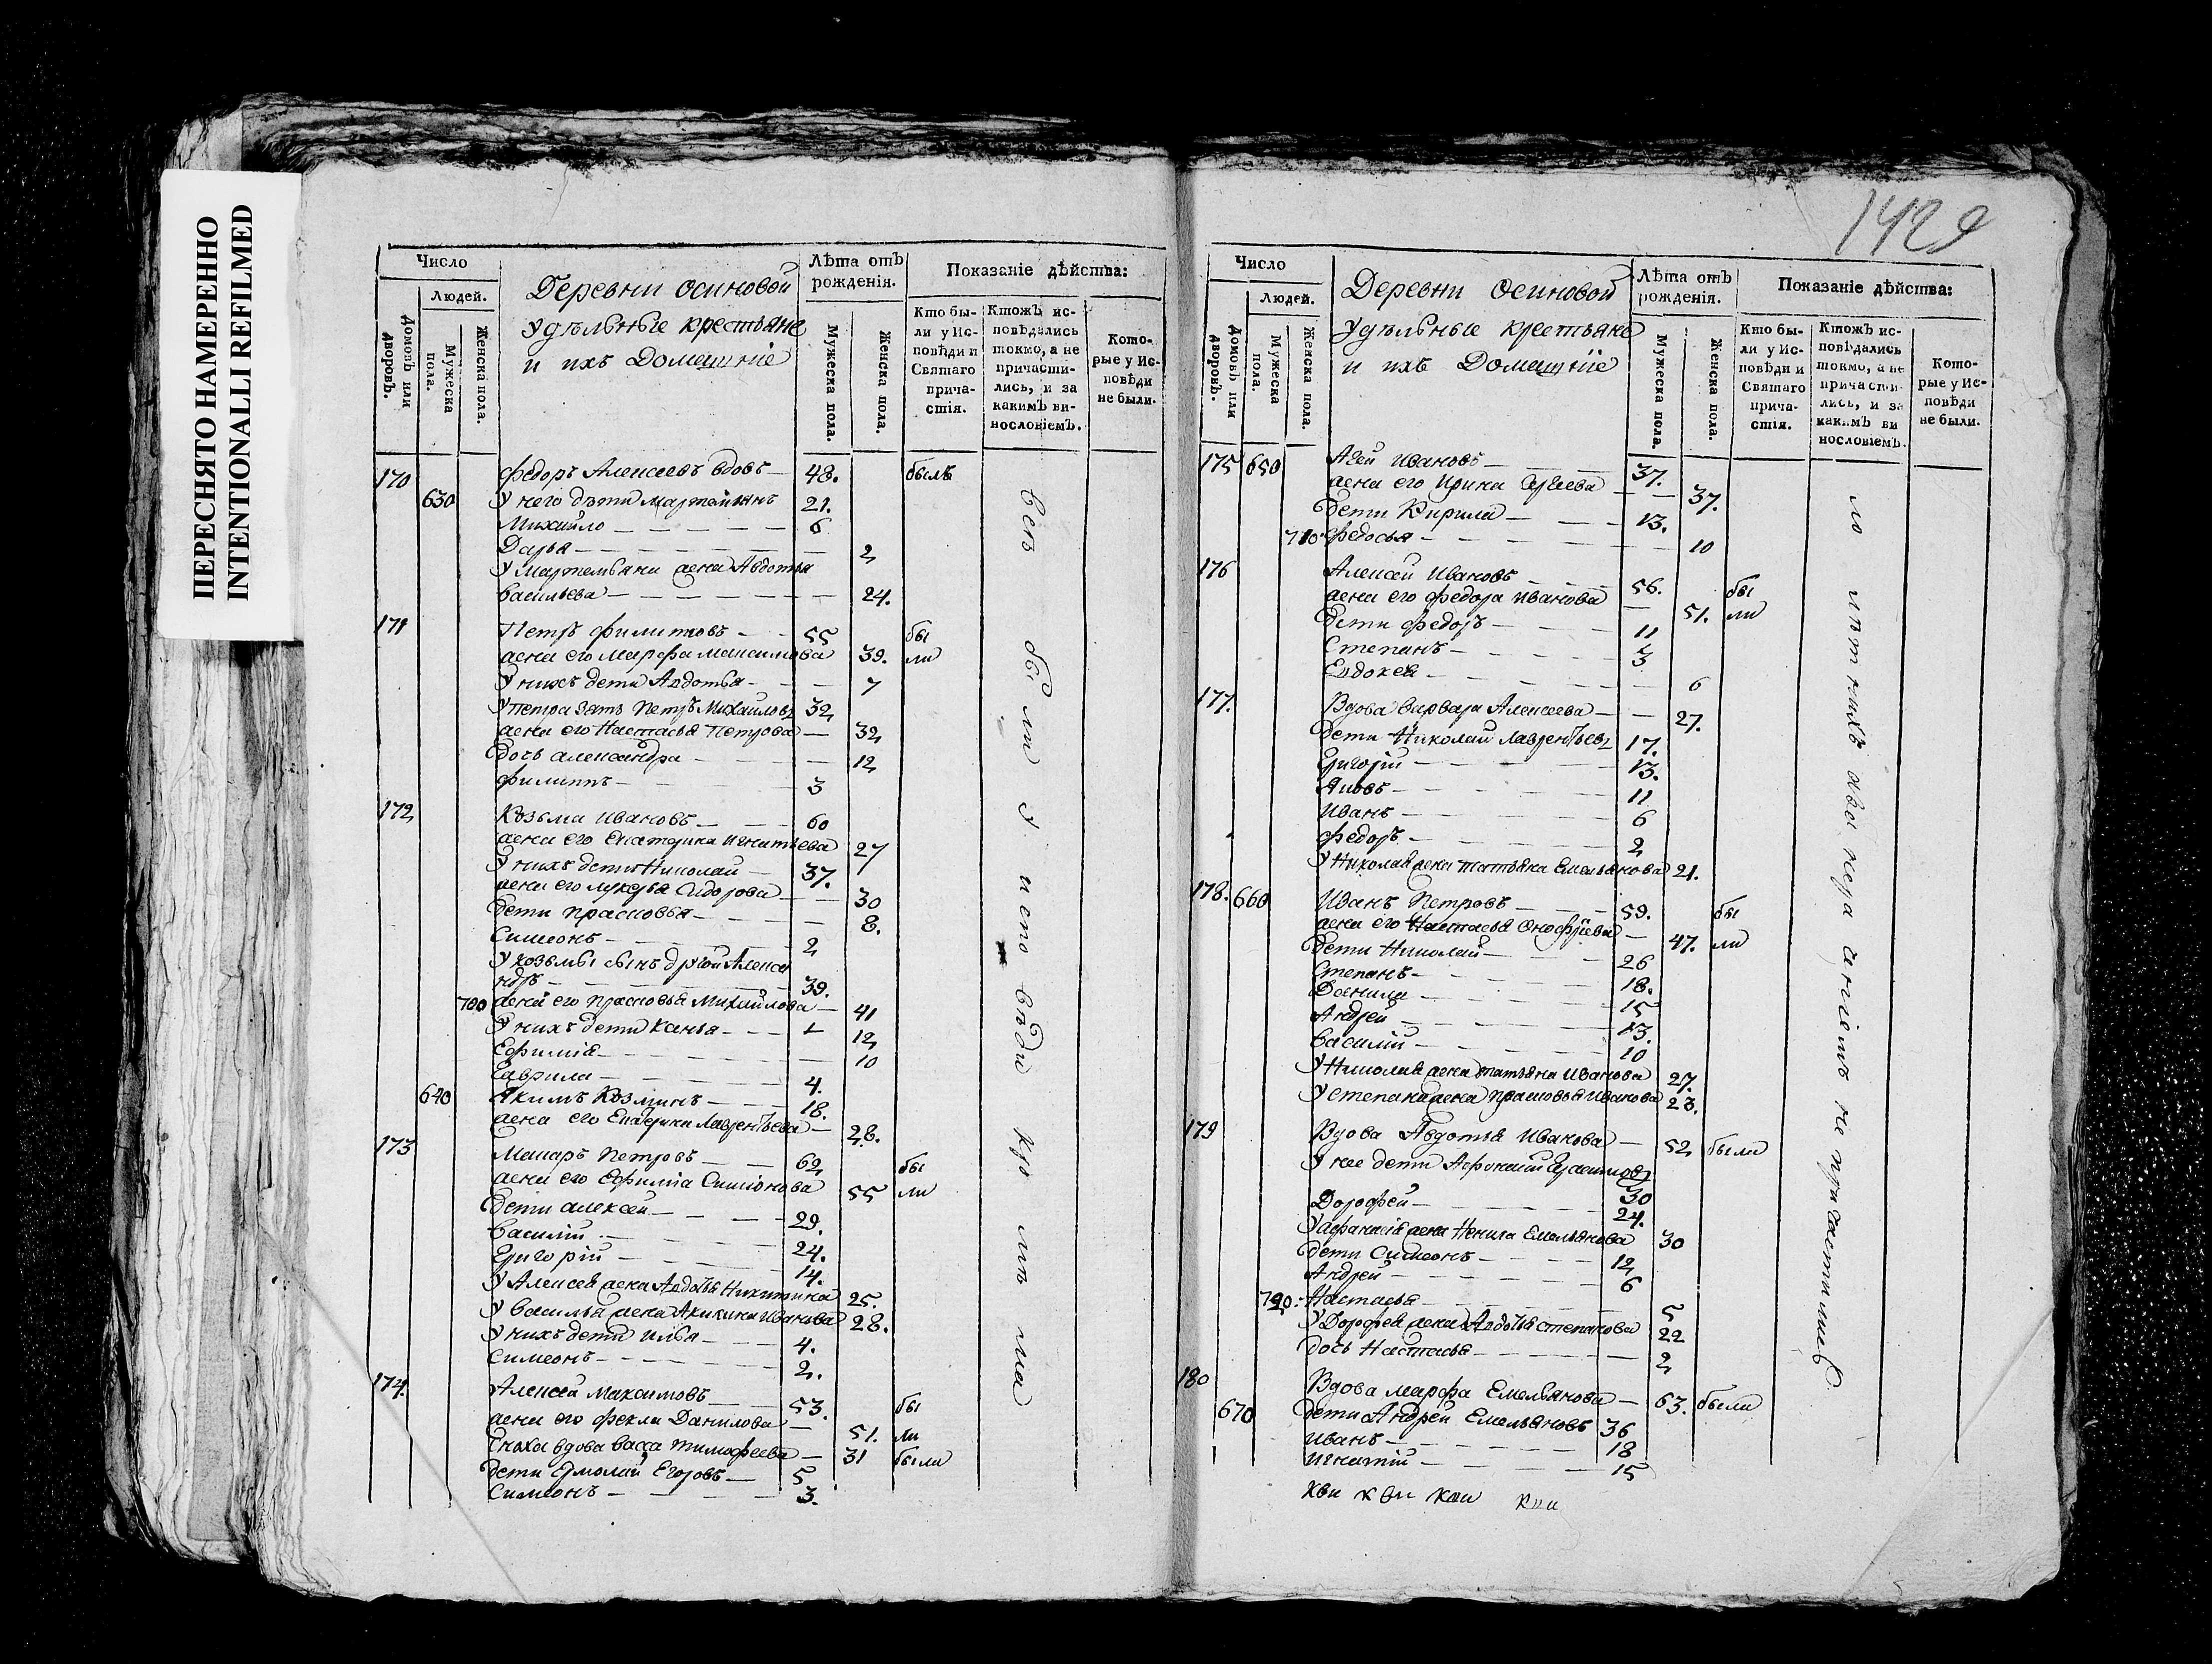 ПЕРЕСНЯТО НАМЕРЕННО
INTENTIONALLI REFILMED
Число
Людей.
Домовъ или дворовъ.
Мужеска пола.
Женска пола.
Деревни Осиновой
Удѣльные крестьяне
и ихъ Домашніе
Лѣта отъ рожденія.
Мужеска пола.
Женска пола.
Показаніе дѣйства:
Кто были у Исповѣди и Святаго причастія.
Ктожъ исповѣдались токмо, а не причастились, и за какимъ винословіемъ.
Которые у Исповѣди не были.
170 Федоръ Алексеевъ вдовъ 48. былъ
630 У него дѣти Мартемианъ 21.
Михайло 6
Дарья 2
У Мартемьяна жена Авдотья
Васильева 24.
171 Петръ Филиповъ 55 бы
жена его Марфа Максимова 39. ли
У нихъ дети Авдотья 7
У Петра зять Петръ Михайловъ 32
жена его Настасья Петрова 32
дочь Александра 12
Филиппъ 3
172 Козьма Ивановъ 60
жена его Екатерина Игнатьева 27
У нихъ дети Николай 37.
жена его Лукерья Сидорова 30
дети Прасковья 8.
Симеонъ 2
У Козьмы сынъ другой Алекса
ндръ 39.
700 жена его Прасковья Михайлова 41
У нихъ дети 12
Ефимія 10
Гаврила 4.
640 Якимъ Козминъ 18.
жена его Екатерина Лаврентьева 28.
173 Макаръ Петровъ 62 бы
жена его Ефимія Симионова 55 ли
дети Алексей 29.
Василій 24.
Григорій 14.
У Алексея жена Авдотья Никитина 25.
У Василья жена Акилина Иванова 28.
У нихъ дети Илья 4.
Симеонъ 2.
174. Алексей Максимовъ 53. бы
жена его Фекла Данилова 51. ли
Сноха вдова Васса Тимофеева 31 были
дети Ермолай Егоровъ 5
Симеонъ 3.
1429
Число
Людей.
Домовъ или дворовъ.
Мужеска пола.
Женска пола.
Деревни Осиновой
Удѣльные крестьяне
и ихъ Домашніе
Лѣта отъ рожденія.
Мужеска пола.
Женска пола.
Показаніе дѣйства:
Кто были у Исповѣди и Святаго причастія.
Ктожъ исповѣдались токмо, а не причастились, и за какимъ винословіемъ.
Которые у Исповѣди не были.
175 650 Агей Ивановъ 37.
жена его Ирина Сергеева 37.
дети Кирила 13.
710 Федосья 10
176 Алексей Ивановъ 56. бы
жена его Федора Иванова 51. ли
дети Федоръ 11
Степанъ 3
Евдокея 6
177. Вдова Варвара Алексеева 27.
дети Николай Лаврентьевъ 17.
Григорій 13.
Яковъ 11
Иванъ 6
Федоръ 2
У Николая жена Татьяна Емельянова 21.
178. 660 Иванъ Петровъ 59. бы
жена его Настасья Онофріева 47. ли
дети Николай 26
Степанъ 18.
Данила 15
Андрей 13.
Василій 10
У Николая жена Татьяна Иванова 27.
У Степана жена Прасковья Иванова 23.
179 Вдова Авдотья Иванова 52 были
У нее дети Афонасий Герасимовъ
30
Дорофей 24.
У Афанасія жена Ненила Емельянова 30
дети Симеонъ 12
Андрей 6
720. Настасья 5
У Дорофея жена Авдотья Степанова 22
дочь Настасья 2
180 Вдова Марфа Емельянова 63. были
670 дети Андрей Емельяновъ 36
Иванъ 18
Игнатій 15